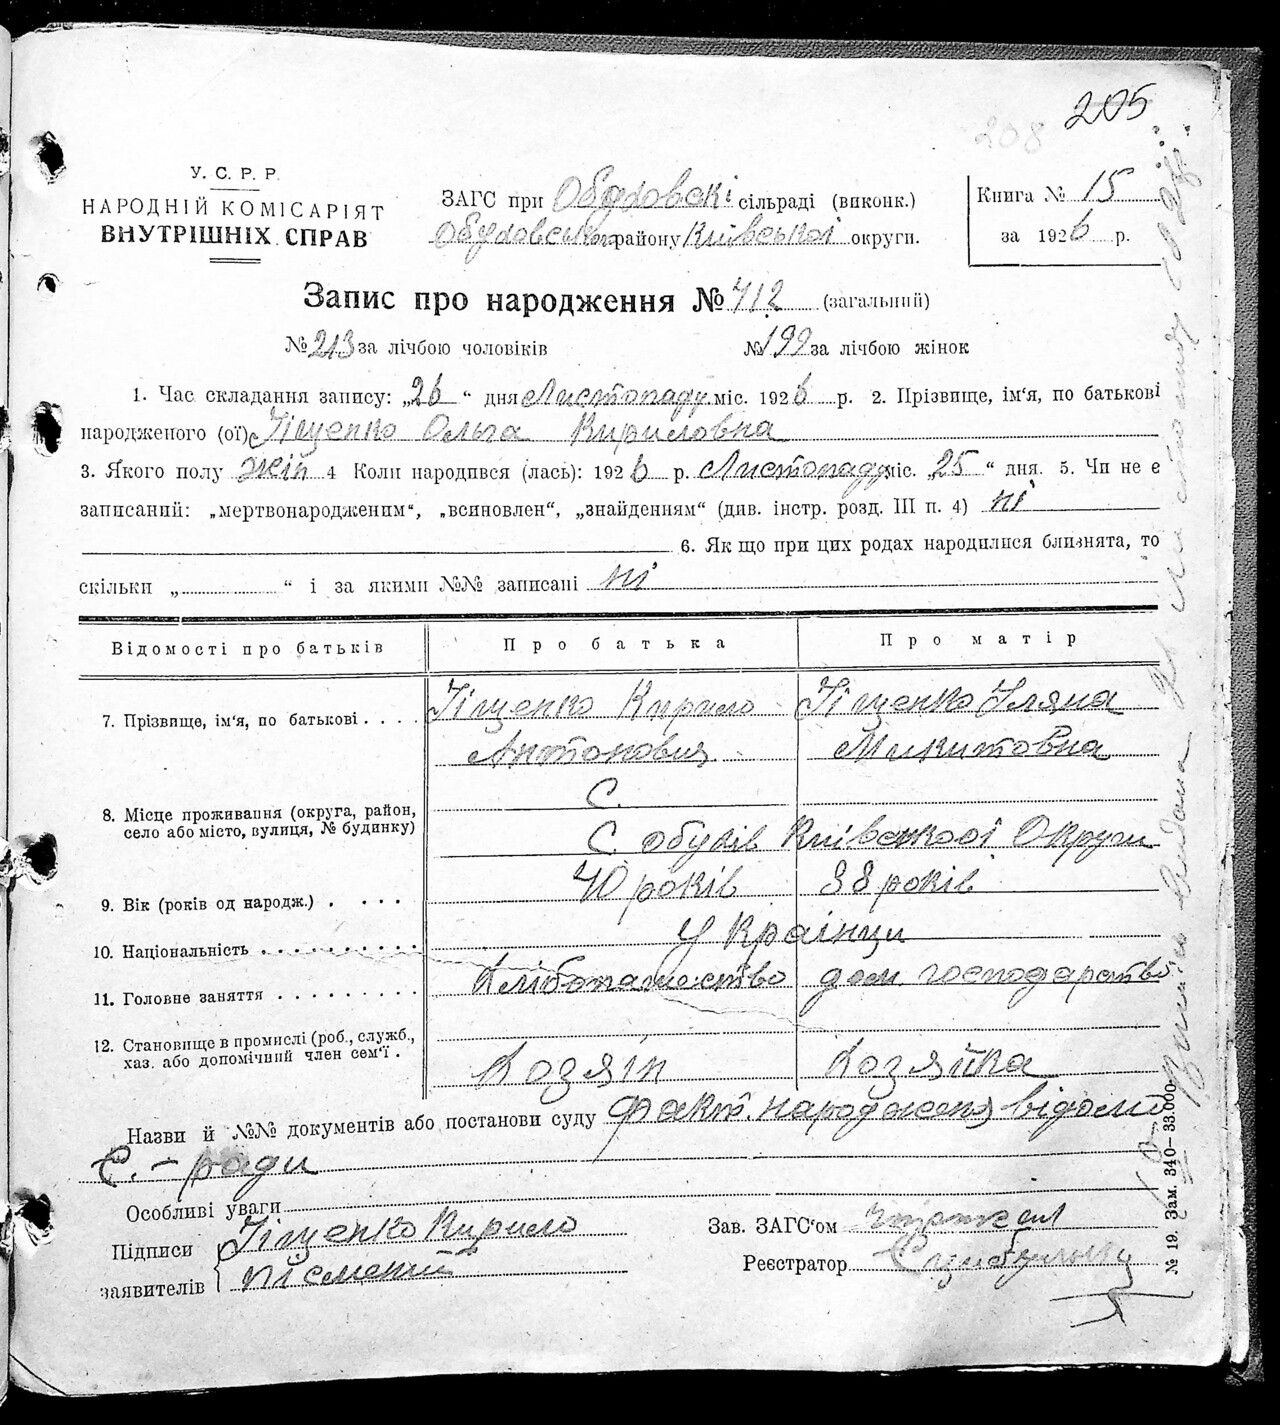 205
208
У. С. Р. Р.
НАРОДНІЙ КОМІСАРІЯТ
ВНУТРІШНІХ СПРАВ
ЗАГС при Обуховскі сільраді (виконк.)
Обуховськ району Київської округи.
Книга № 15
за 1926 р.
Запис про народження № 412 (загальний)
№ 213 за лічбою чоловіків № 199 за лічбою жінок
1. Час складання запису: „26“ дня Листопаду міс. 1926 р. 2. Прізвище, ім'я, по батькові
народженого (ої) Іщенко Ольга Кириловна
3. Якого полу жін 4 Коли народився (лась): 1926 р. Листопаду міс. „25“ дня. 5. Чи не е
записаний: „мертвонародженим“, „всиновлен“, „знайденням“ (див. інстр. розд. III п. 4) ні
6. Як що при цих родах народилися близнята, то
скільки „ “ і за якими №№ записані ні
Відомості про батьків Про батька Про матір
7. Прізвище, ім'я, по батькові . . . . Іщенко Кирило Іщенко Уляна
Антонович Микитовна
С.
8. Місце проживання (округа, район,
село або місто, вулиця, № будинку) С Обухів Київскої Округи
9. Вік (років од народж.) . . . . 40 років 38 років
10. Національність . . . . . . . . . . Українци
11. Головне заняття . . . . . . . . . Хлібопашество дом. господарство
12. Становище в промислі (роб., служб.,
хаз. або допомічний член сем'ї . Хозяїн Хозяйка
Назви й №№ документів або постанови суду факт. народження відомо
С. - ради
Особливі уваги
Підписи
заявителів
Іщенко Кирило
Зав. ЗАГС'ом
Реєстратор
№ 19. Зам. 340—33.000